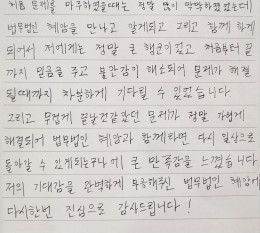 처음 문제를 마주하였을때는 정말 많이 막막하였었는데
법무법인 혜암을 만나고 알게되고 그리고 함께 하게
되어서 저에게는 정말 큰 행운이었고 처음부터 끝
까지 믿음을 주고 불안감이 해소되어 문제가 해결
될때까지 차분하게 기다릴 수 있었습니다
그리고 무겁게 짓눌렸던 문제가 정말 가볍게
해결되어 법무법인 혜암과 함께라면 다시 일상으로
돌아갈 수 있게되는구나에 큰 만족감을 느꼈습니다
저의 기대감을 완벽하게 부응해주신 법무법인 혜암에
다시한번 진심으로 감사드립니다!